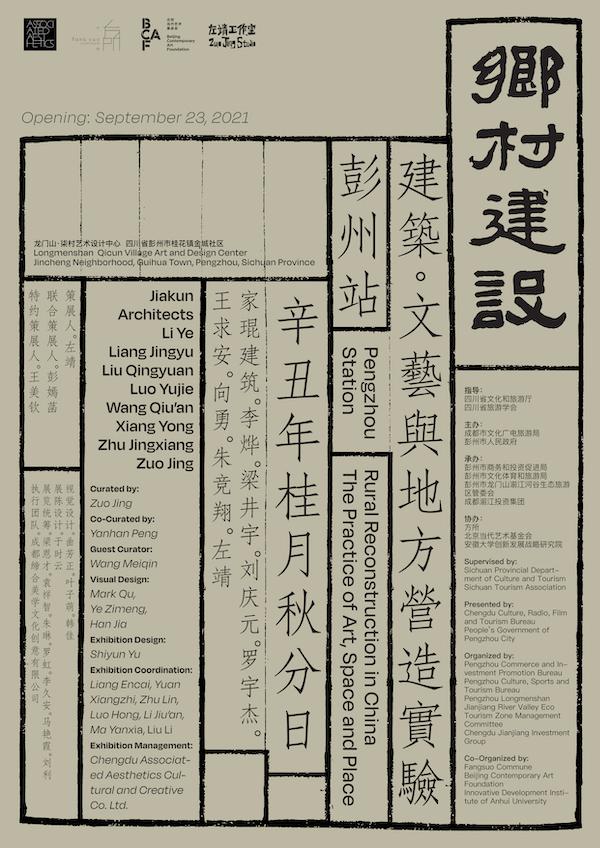 ASSOCI
ATED
AESTH
ETICS
Fang suo
方所
B
CA
F
北京
当代艺术
基金会
Beijing
Contemporary
Art
Foundation
左靖工作室
Zuo Jing Studio
Opening: September 23, 2021
鄉村建設
建築。文藝與地方營造實驗
彭州站
Pengzhou
Station
Rural Reconstruction in China
The Practice of Art, Space and Place
龙门山·柒村艺术设计中心 四川省彭州市桂花镇金城社区
Longmenshan Qicun Village Art and Design Center
Jincheng Neighborhood, Guihua Town, Pengzhou, Sichuan Province
辛丑年桂月秋分日
家琨建筑。李烨。梁井宇。刘庆元。罗宇杰。
王求安。向勇。朱竞翔。左靖
Jiakun
Architects
Li Ye
Liang Jingyu
Liu Qingyuan
Luo Yujie
Wang Qiu'an
Xiang Yong
Zhu Jingxiang
Zuo Jing
Curated by:
Zuo Jing
Co-Curated by:
Yanhan Peng
Guest Curator:
Wang Meiqin
Visual Design:
Mark Qu,
Ye Zimeng,
Han Jia
Exhibition Design:
Shiyun Yu
Exhibition Coordination:
Liang Encai, Yuan
Xiangzhi, Zhu Lin,
Luo Hong, Li Jiu'an,
Ma Yanxia, Liu Li
Exhibition Management:
Chengdu Associat-
ed Aesthetics Cul-
tural and Creative
Co. Ltd.
策展人。左靖
联合策展人。彭嫣菡
特约策展人。王美钦
视觉设计。曲芳正。叶子萌。韩佳
展陈设计。于时云
展览统筹。梁恩才。袁祥智。朱琳。罗虹。李久安。马艳霞。刘利
执行团队。成都缔合美学文化创意有限公司
指导:
四川省文化和旅游厅
四川省旅游学会
主办:
成都市文化广电旅游局
彭州市人民政府
承办:
彭州市商务和投资促进局
彭州市文化体育和旅游局
彭州市龙门山湔江河谷生态旅游
区管委会
成都湔江投资集团
协办:
方所
北京当代艺术基金会
安徽大学创新发展战略研究院
Supervised by:
Sichuan Provincial Depart-
ment of Culture and Tourism
Sichuan Tourism Association
Presented by:
Chengdu Culture, Radio, Film
and Tourism Bureau
People's Government of
Pengzhou City
Organized by:
Pengzhou Commerce and In-
vestment Promotion Bureau
Pengzhou Culture, Sports and
Tourism Bureau
Pengzhou Longmenshan
Jianjiang River Valley Eco
Tourism Zone Management
Committee
Chengdu Jianjiang Investment
Group
Co-Organized by:
Fangsuo Commune
Beijing Contemporary Art
Foundation
Innovative Development Insti-
tute of Anhui University